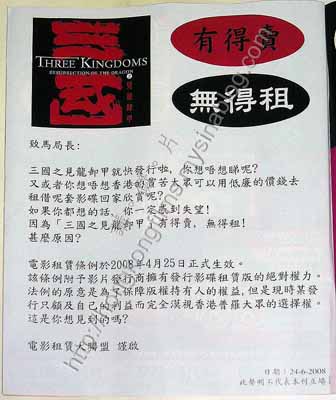 三國
THREE KINGDOMS
RESURRECTION OF THE DRAGON
見龍卸甲
有得賣
無得租
致馬局長:
三國之見龍卸甲就快發行啦, 你想唔想睇呢?
又或者你想唔想香港的貧苦大眾可以用低廉的價錢去
租借呢套影碟回家欣賞呢?
如果你都想的話, 你一定感到失望!
因為「三國之見龍卸甲」有得賣, 無得租!
甚麼原因?
電影租賃條例於2008年4月25日正式生效。
該條例附予影片發行商擁有發行影碟租賃版的絕對權力。
法例的原意是為了保障版權持有人的權益, 但是現時某發
行只顧及自己的利益而完全漠視香港普羅大眾的選擇權。
這是你想見到的嗎?
電影租賃大聯盟 謹啟
日期: 24-6-2008
此聲明不代表本刊立場